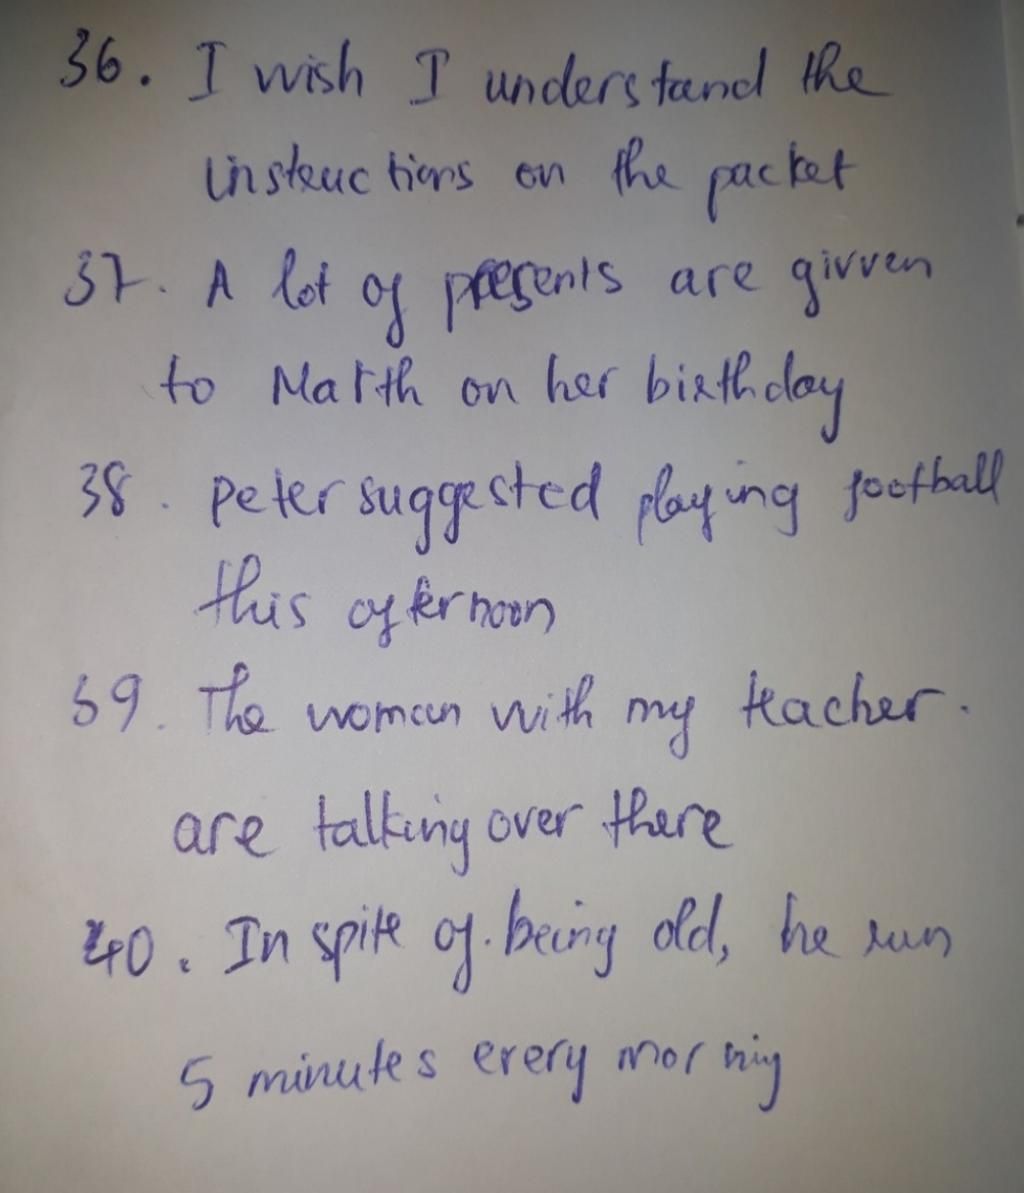 36. I wish I understand the
instructions on the packet
37. A lot of presents are givven
to Marth on her birthday
38. Peter suggested playing football
this afternoon
39. The woman with my teacher.
are talking over there
40. In spite of. being old, he run
5 minutes every morning